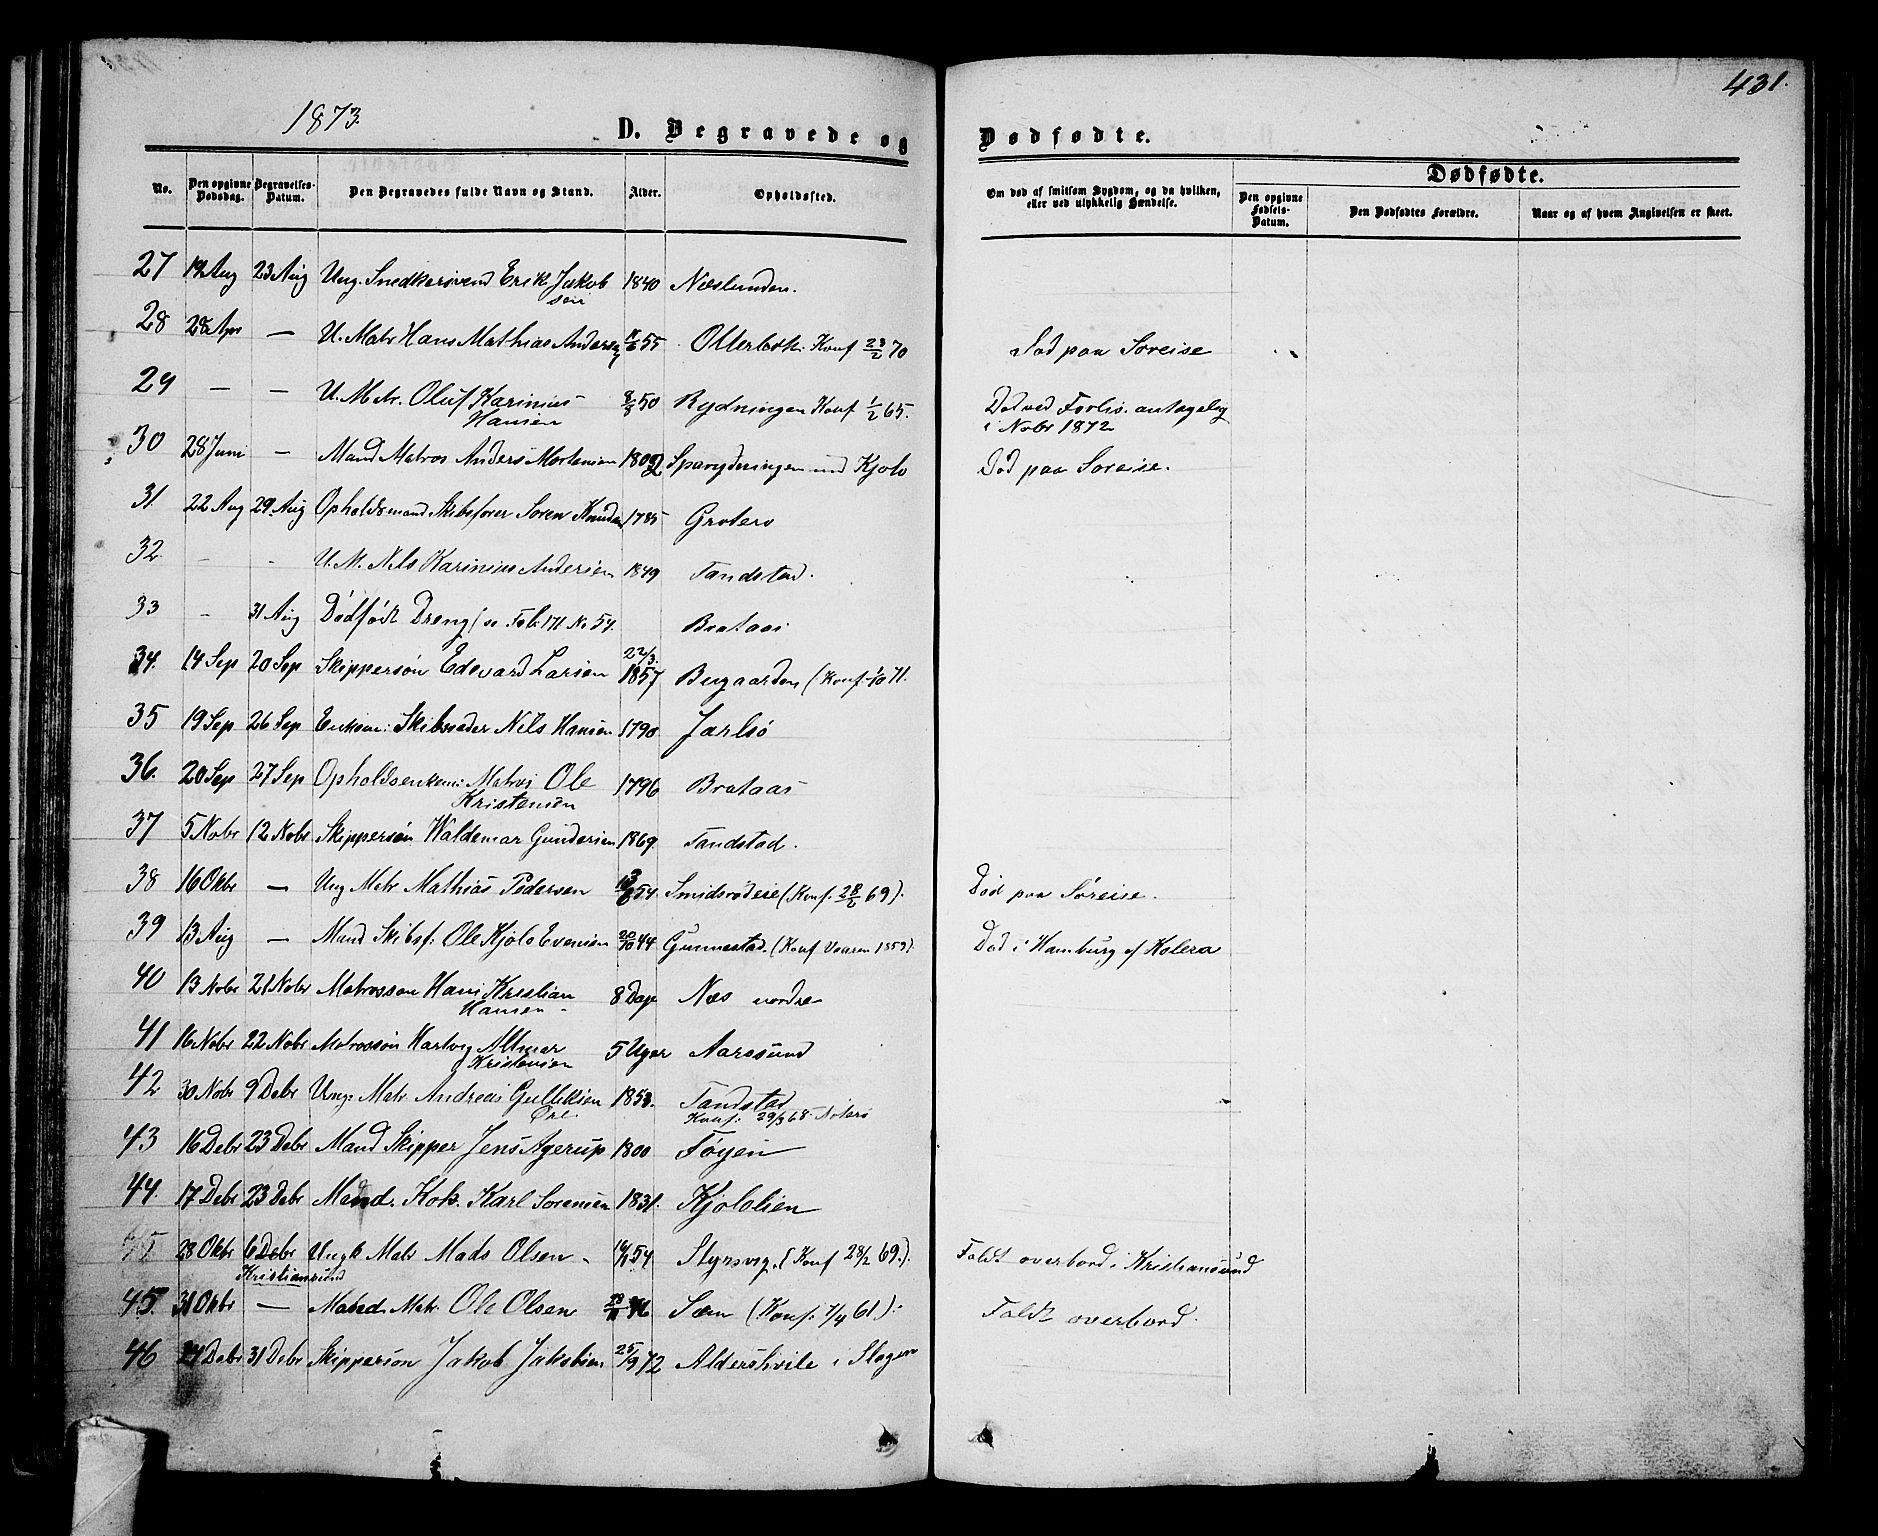 431.
1873.
D. Begravede og Dødfødte.
No. Den opgivne Dødsdag. Begravelses-Datum. Den Begravedes fulde Navn og Stand. Alder. Opholdssted. Om død af smitsom Sygdom, og da hvilken, eller ved ulykkelig Hændelse. Dødfødte. Den opgivne Fødsels-Datum. Den Dødfødtes Forældre. Naar og af hvem Angivelsen er skeet.
27 19 Aug 23 Aug Ung. Snedkersvend Erik Jakobsen 1840 Næslunden.
28 28 Apr — U. Matr Hans Mathias Andersen 55 Konf 23/2 70 Død paa Søreise
29 — — U. Matr. Oluf Karinius Hansen 8/8 50 Rydningen Konf 1/2 65. Død ved Forlis. antagelig i Nobr 1872
30 28 Juni — Mand Matros Anders Mortensen 1802 Sparydningen Kjølø Død paa Søreise.
31. 22 Aug 29 Aug Opholdsmand Skibsfører Søren Knudsen 1785 Grøterø
32. - - U. M. Nils Karinius Andersen 1849 Tandstad.
33 - 31 Aug Dødfødt Dreng (se Fol. 171 No 54. Brataas
34. 14 Sep 20 Sep Skippersøn Edovard Larsen 22/3. 1857 Bugaarden (Konf. 1/10 71.
35 19 Sep 26 Sep Enkem: Skibsreder Nils Hansen 1790 Jarlsø
36. 20 Sep 27 Sep Opholdsenkem: Matros Ole Kristensen 1796 Brataas
37 5 Nobr 12 Nobr Skippersøn Waldemar Gundersen 1869. Tandstad.
38 16 Okbr — Ung Matr Mathias Pedersen 54 Smidsrødere (Konf. 69). Død paa Søreise.
39 13 Aug — Mand Skibsf: Ole Kjølø Evensen 20/10 44 Gunnestad. (Konf Vaaren 1859). Død i Hamburg af Kolera
40 13 Nobr 21 Nobr Matrossøn Hans Kristian Hansen - 8 Dage Næs nordre
41 16 Nobr 22 Nobr Matrossøn Hartvig Altmar Kristensen 5 Uger Aarøsund
42 30 Nobr 9 Debr Ung. Matr. Andreas Gulliksen Øre. 1853. Tandstad Konf: 29/3 68. Nøterø
43 16 Debr 23 Debr Mand Skipper Jens Agerup 1800 Føyen
44. 17 Debr 23 Debr Mand. Kok. Karl Sørensen 1831. Kjøløllien
45 28 Okbr 6 Debr Kristiansund Ungk Matr Mads Olsen - 54 Slynsvig. (Konf 28/2 69.) Faldt overbord i Kristiansund
45. 31 Okbr — Mand. Matr. Ole Olsen 46 Sæm (Konf: 7/4 61). Faldt overbord.
46 24 Debr 31 Debr Skippersøn Jakob Jakobsen 25/9 72 Aldershvile i Slagen